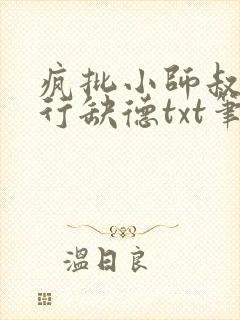 疯批小師叔
行缺德txt筆
溫日良